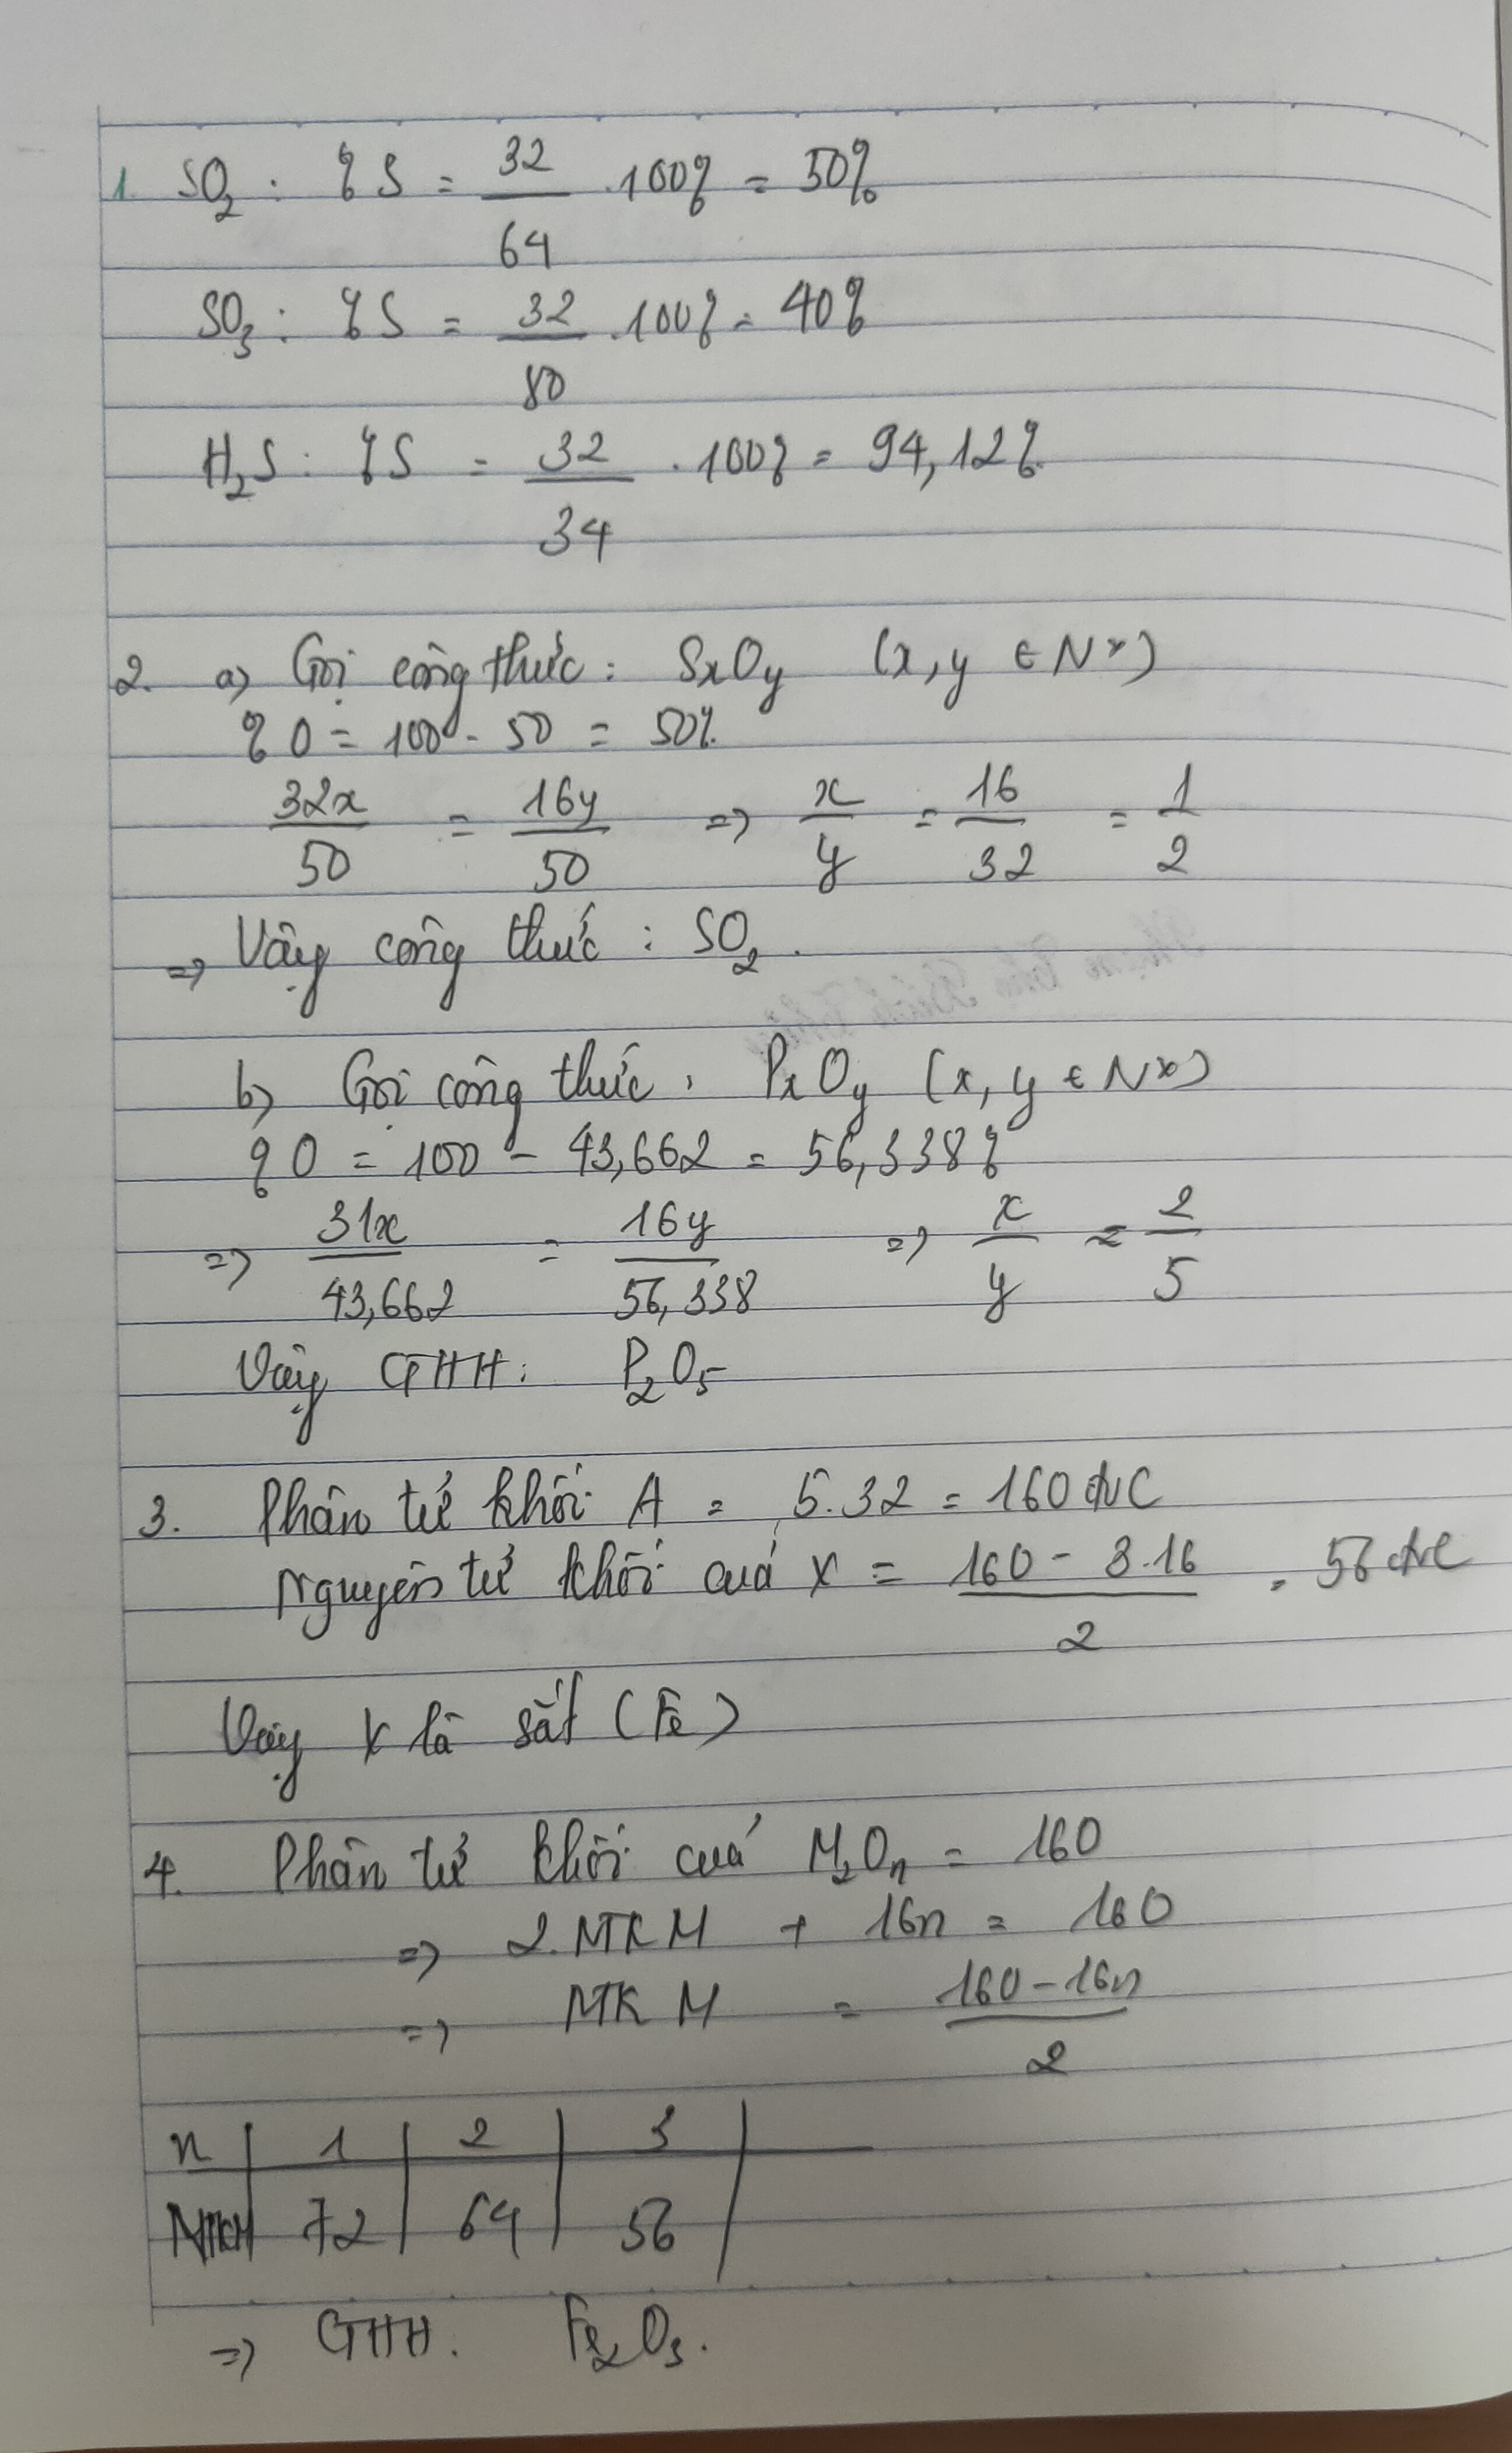 1. SO2 : % S = 32/64 . 100% = 50%
SO3 : % S = 32/80 . 100% = 40%
H2S : % S = 32/34 . 100% = 94,12%
2. a) Gọi công thức : SxOy (x, y ∈ N*)
% O = 100 - 50 = 50%
32x/50 = 16y/50 => x/y = 16/32 = 1/2
=> Vậy công thức : SO2 .
b) Gọi công thức : PxOy (x, y ∈ N*)
% O = 100 - 43,662 = 56,338%
=> 31x/43,662 = 16y/56,338 => x/y = 2/5
Vậy CTHH : P2O5
3. Phân tử khối A = 5.32 = 160 đvC
Nguyên tử khối của X = 160 - 3.16/2 = 56 đvC
Vậy X là sắt (Fe)
4. Phân tử khối của M2On = 160
=> 2. NTK M + 16n = 160
=> NTK M = 160 - 16n/2
n | 1 | 2 | 3 |
NTKM | 72 | 64 | 56 |
=> CTHH . Fe2O3 .